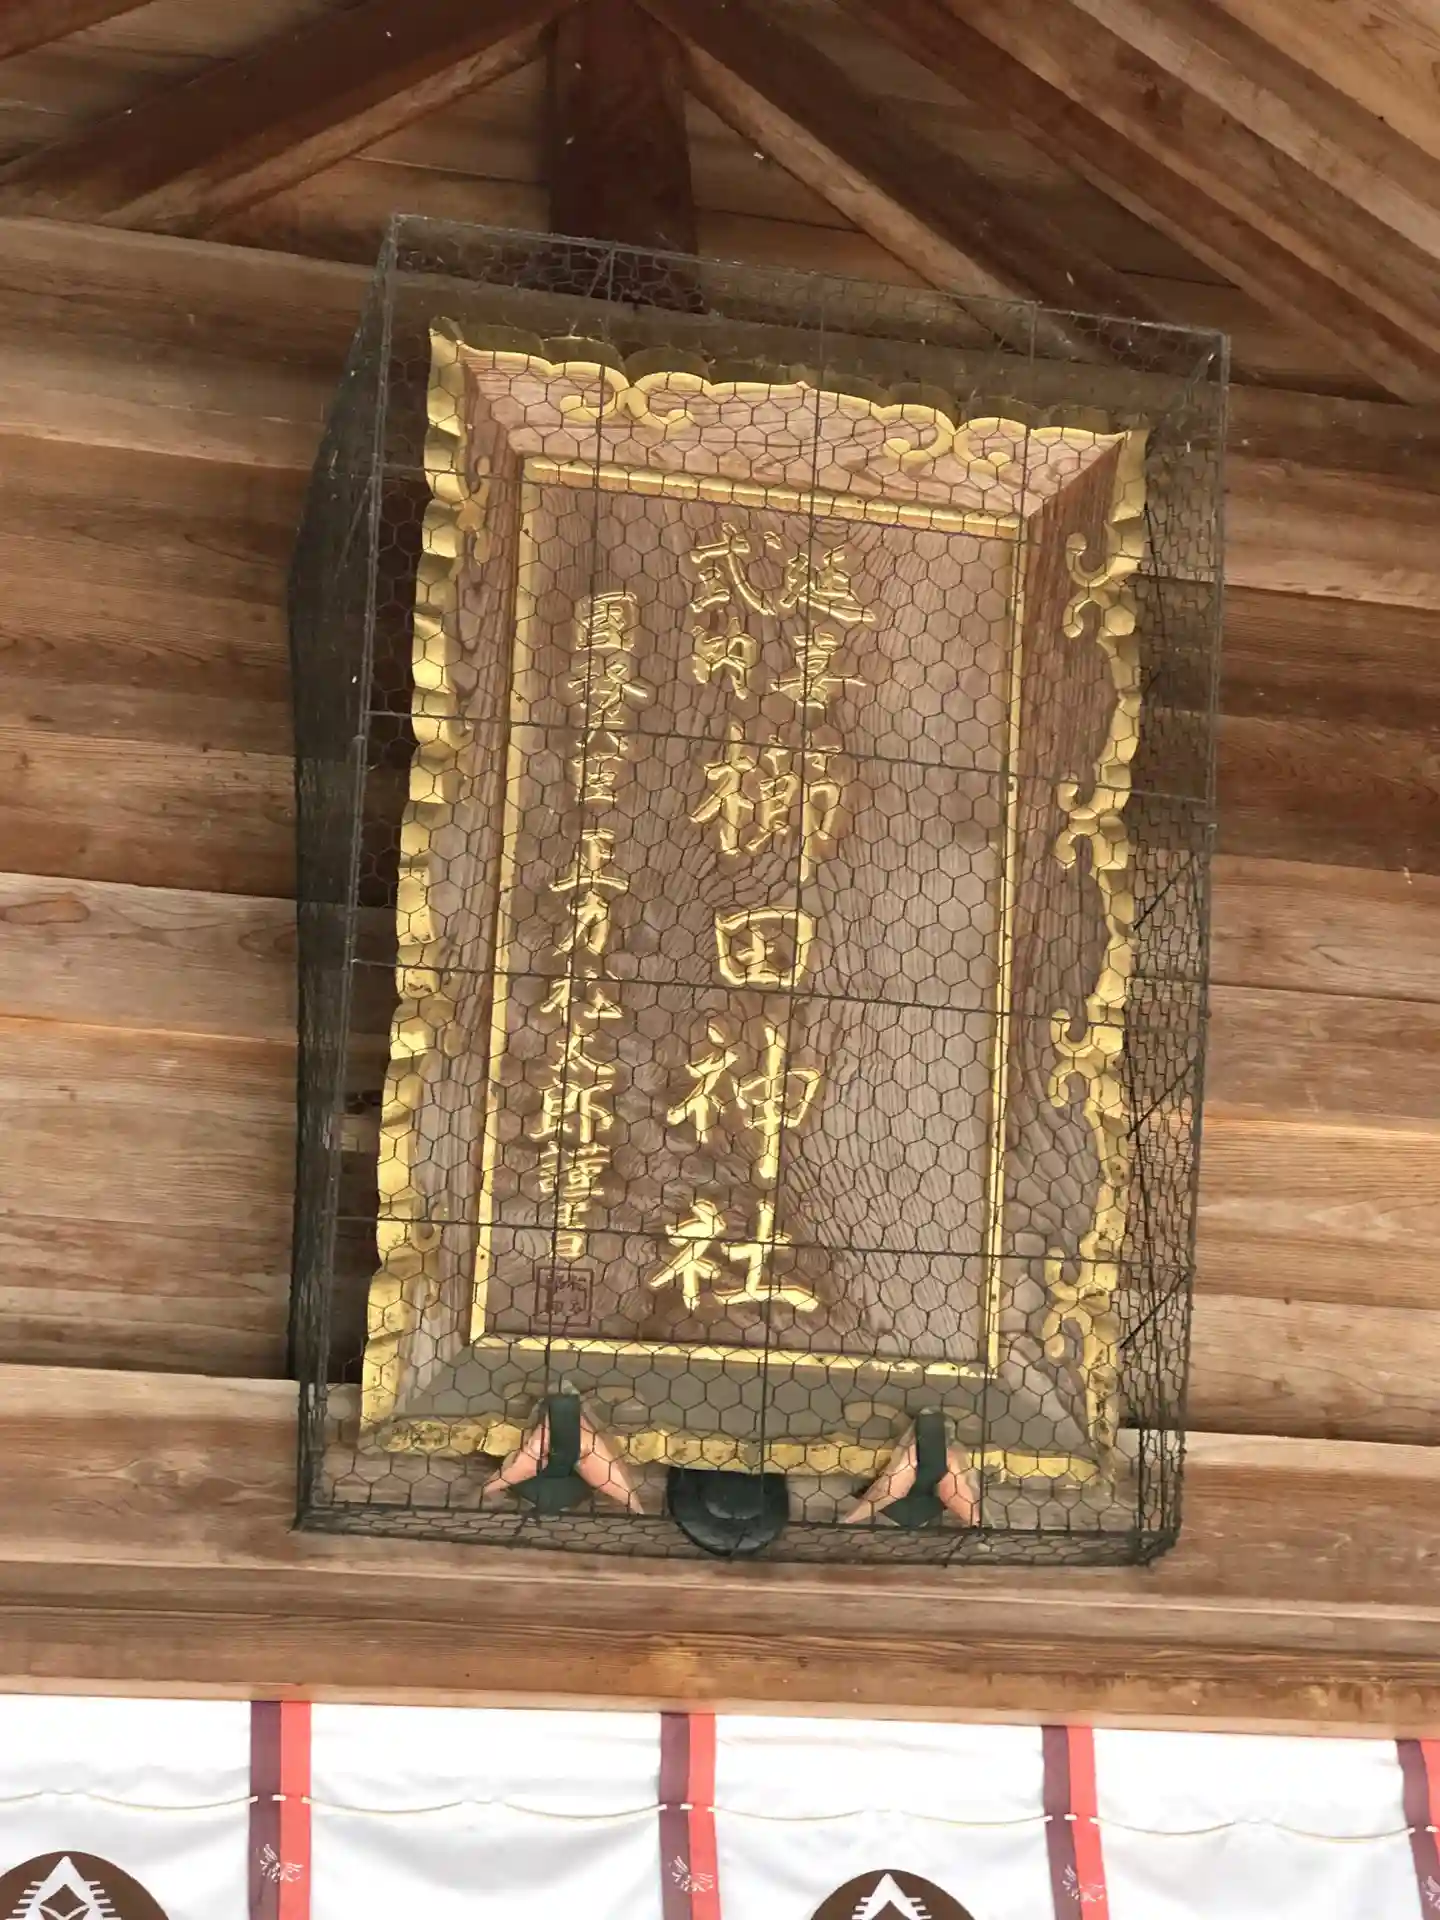 延喜
式内
櫛田神社
國務大臣正力松太郎謹書